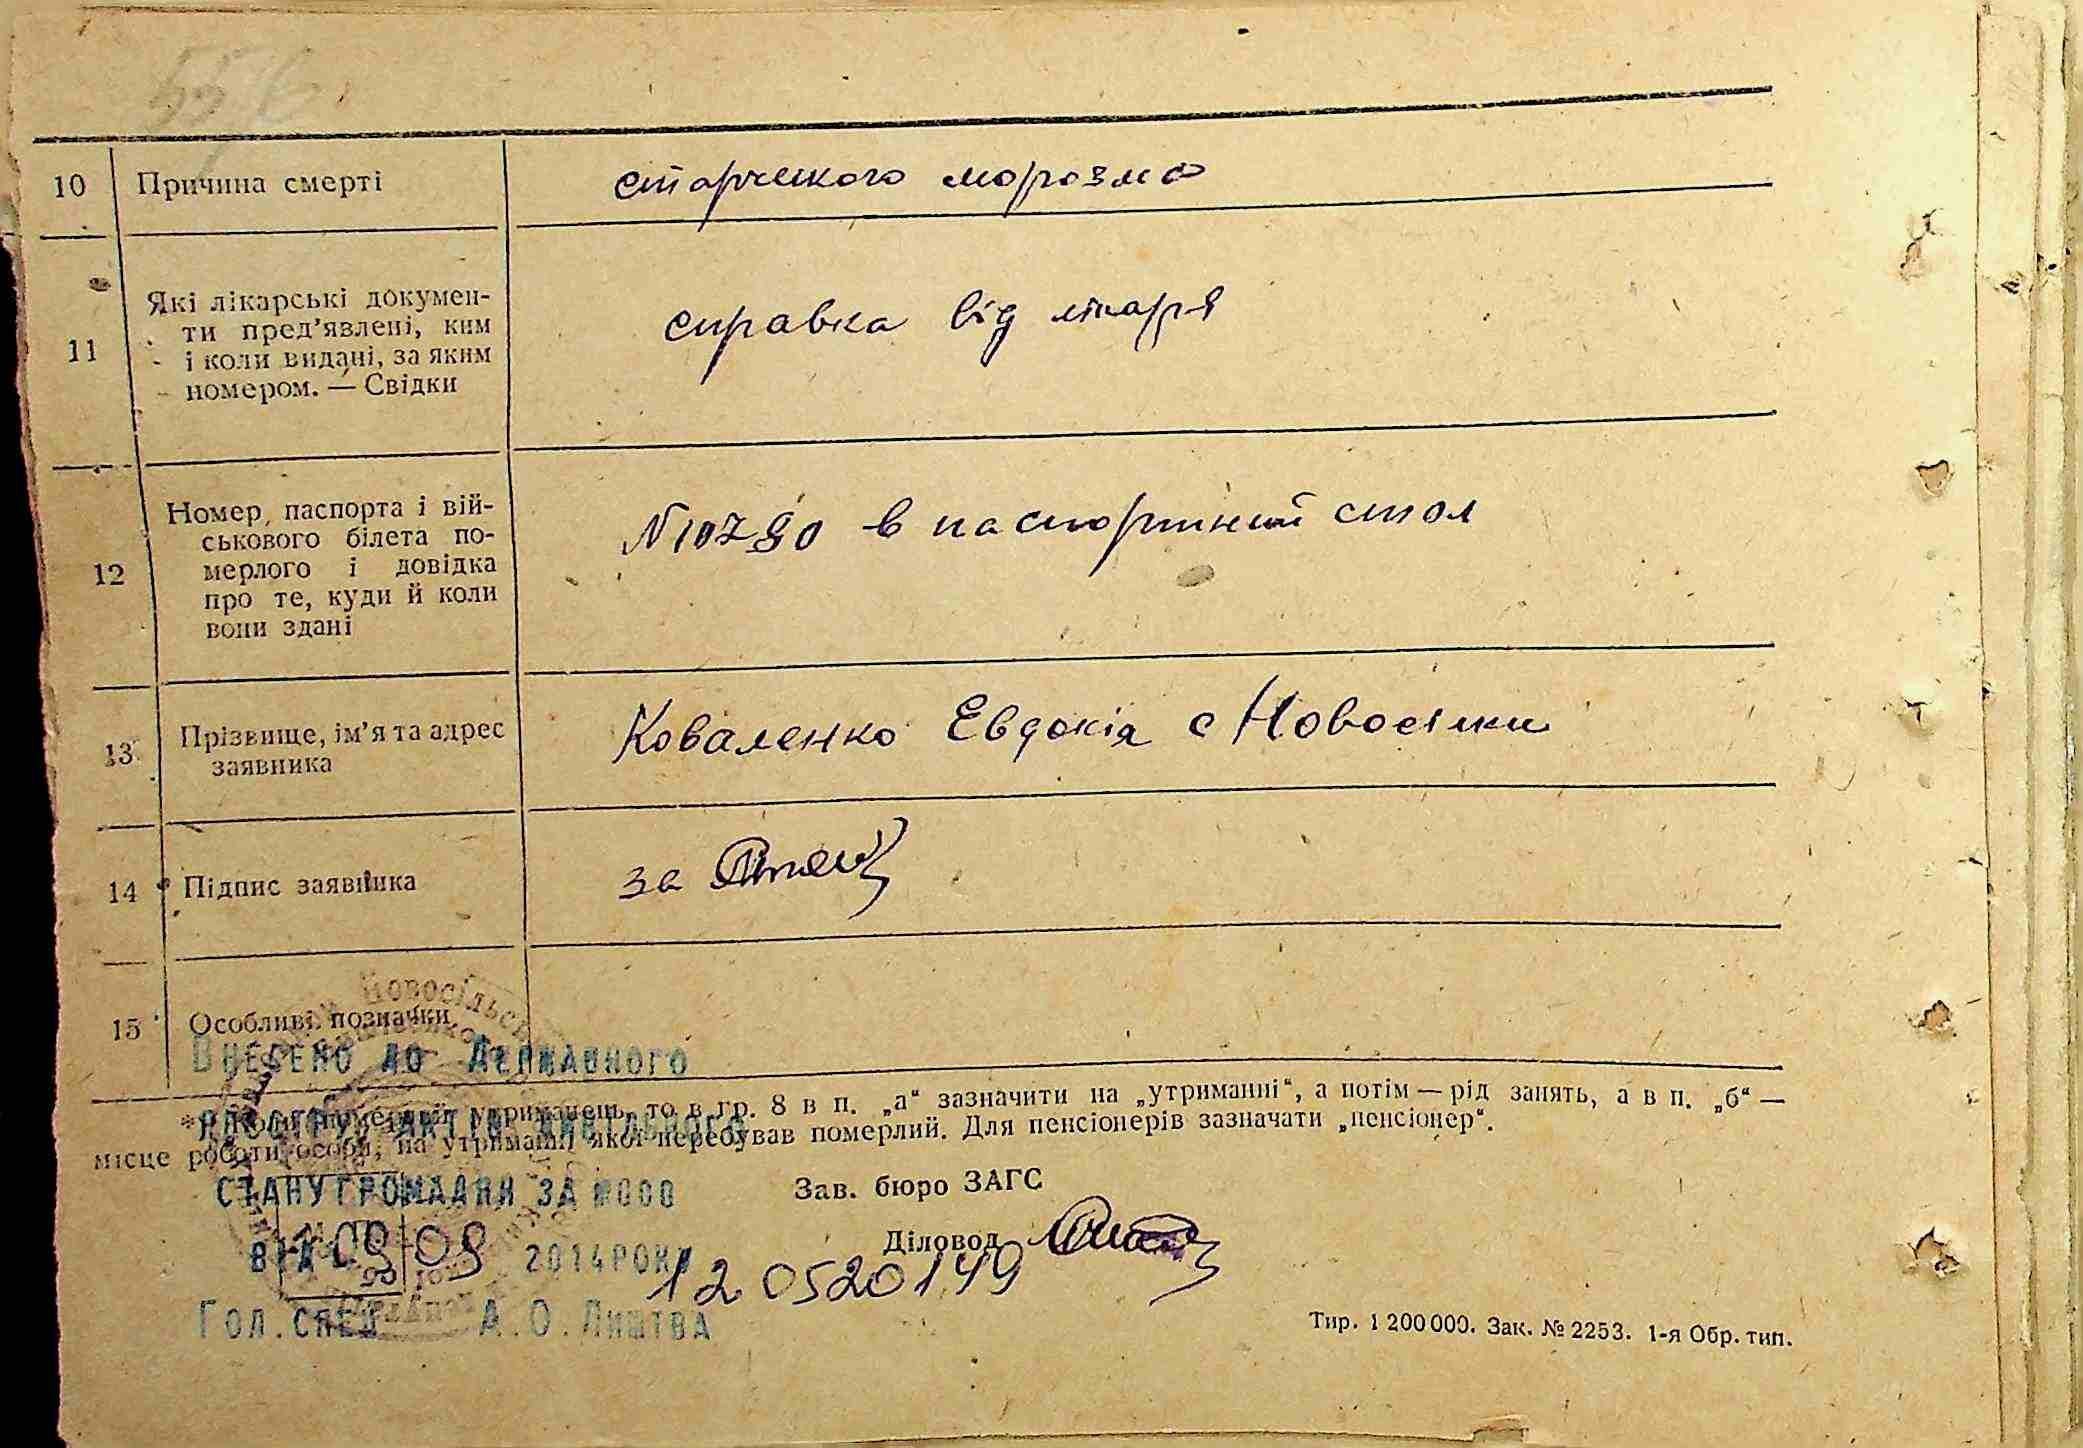 10 Причина смерті старческого морозма
11 Які лікарські докумен-
ти пред’явлені, ким
і коли видані, за яким
номером. — Свідки
справка від лікаря
12 Номер паспорта і вій-
ськового білета по-
мерлого і довідка
про те, куди й коли
вони здані
N 10780 в паспортний стол
13 Прізвище, ім’я та адрес
заявника
Коваленко Евдокія с Новосілки
14 Підпис заявника за
15 Особливі позначки
Внесено до Державного
* то в гр. 8 в п. „а“ зазначити на „утриманні“, а потім — рід занять, а в п. „б“ —
місце роботи особи, на утриманні якої перебував померлий. Для пенсіонерів зазначати „пенсіонер“.
реєстру актів цивільного
стану громадян за №000
Зав. бюро ЗАГС
Діловод
від 09 09 2014 року
Гол. спец. А.О. Лиштва
Тир. 1 200 000. Зак. № 2253. 1-я Обр. тип.